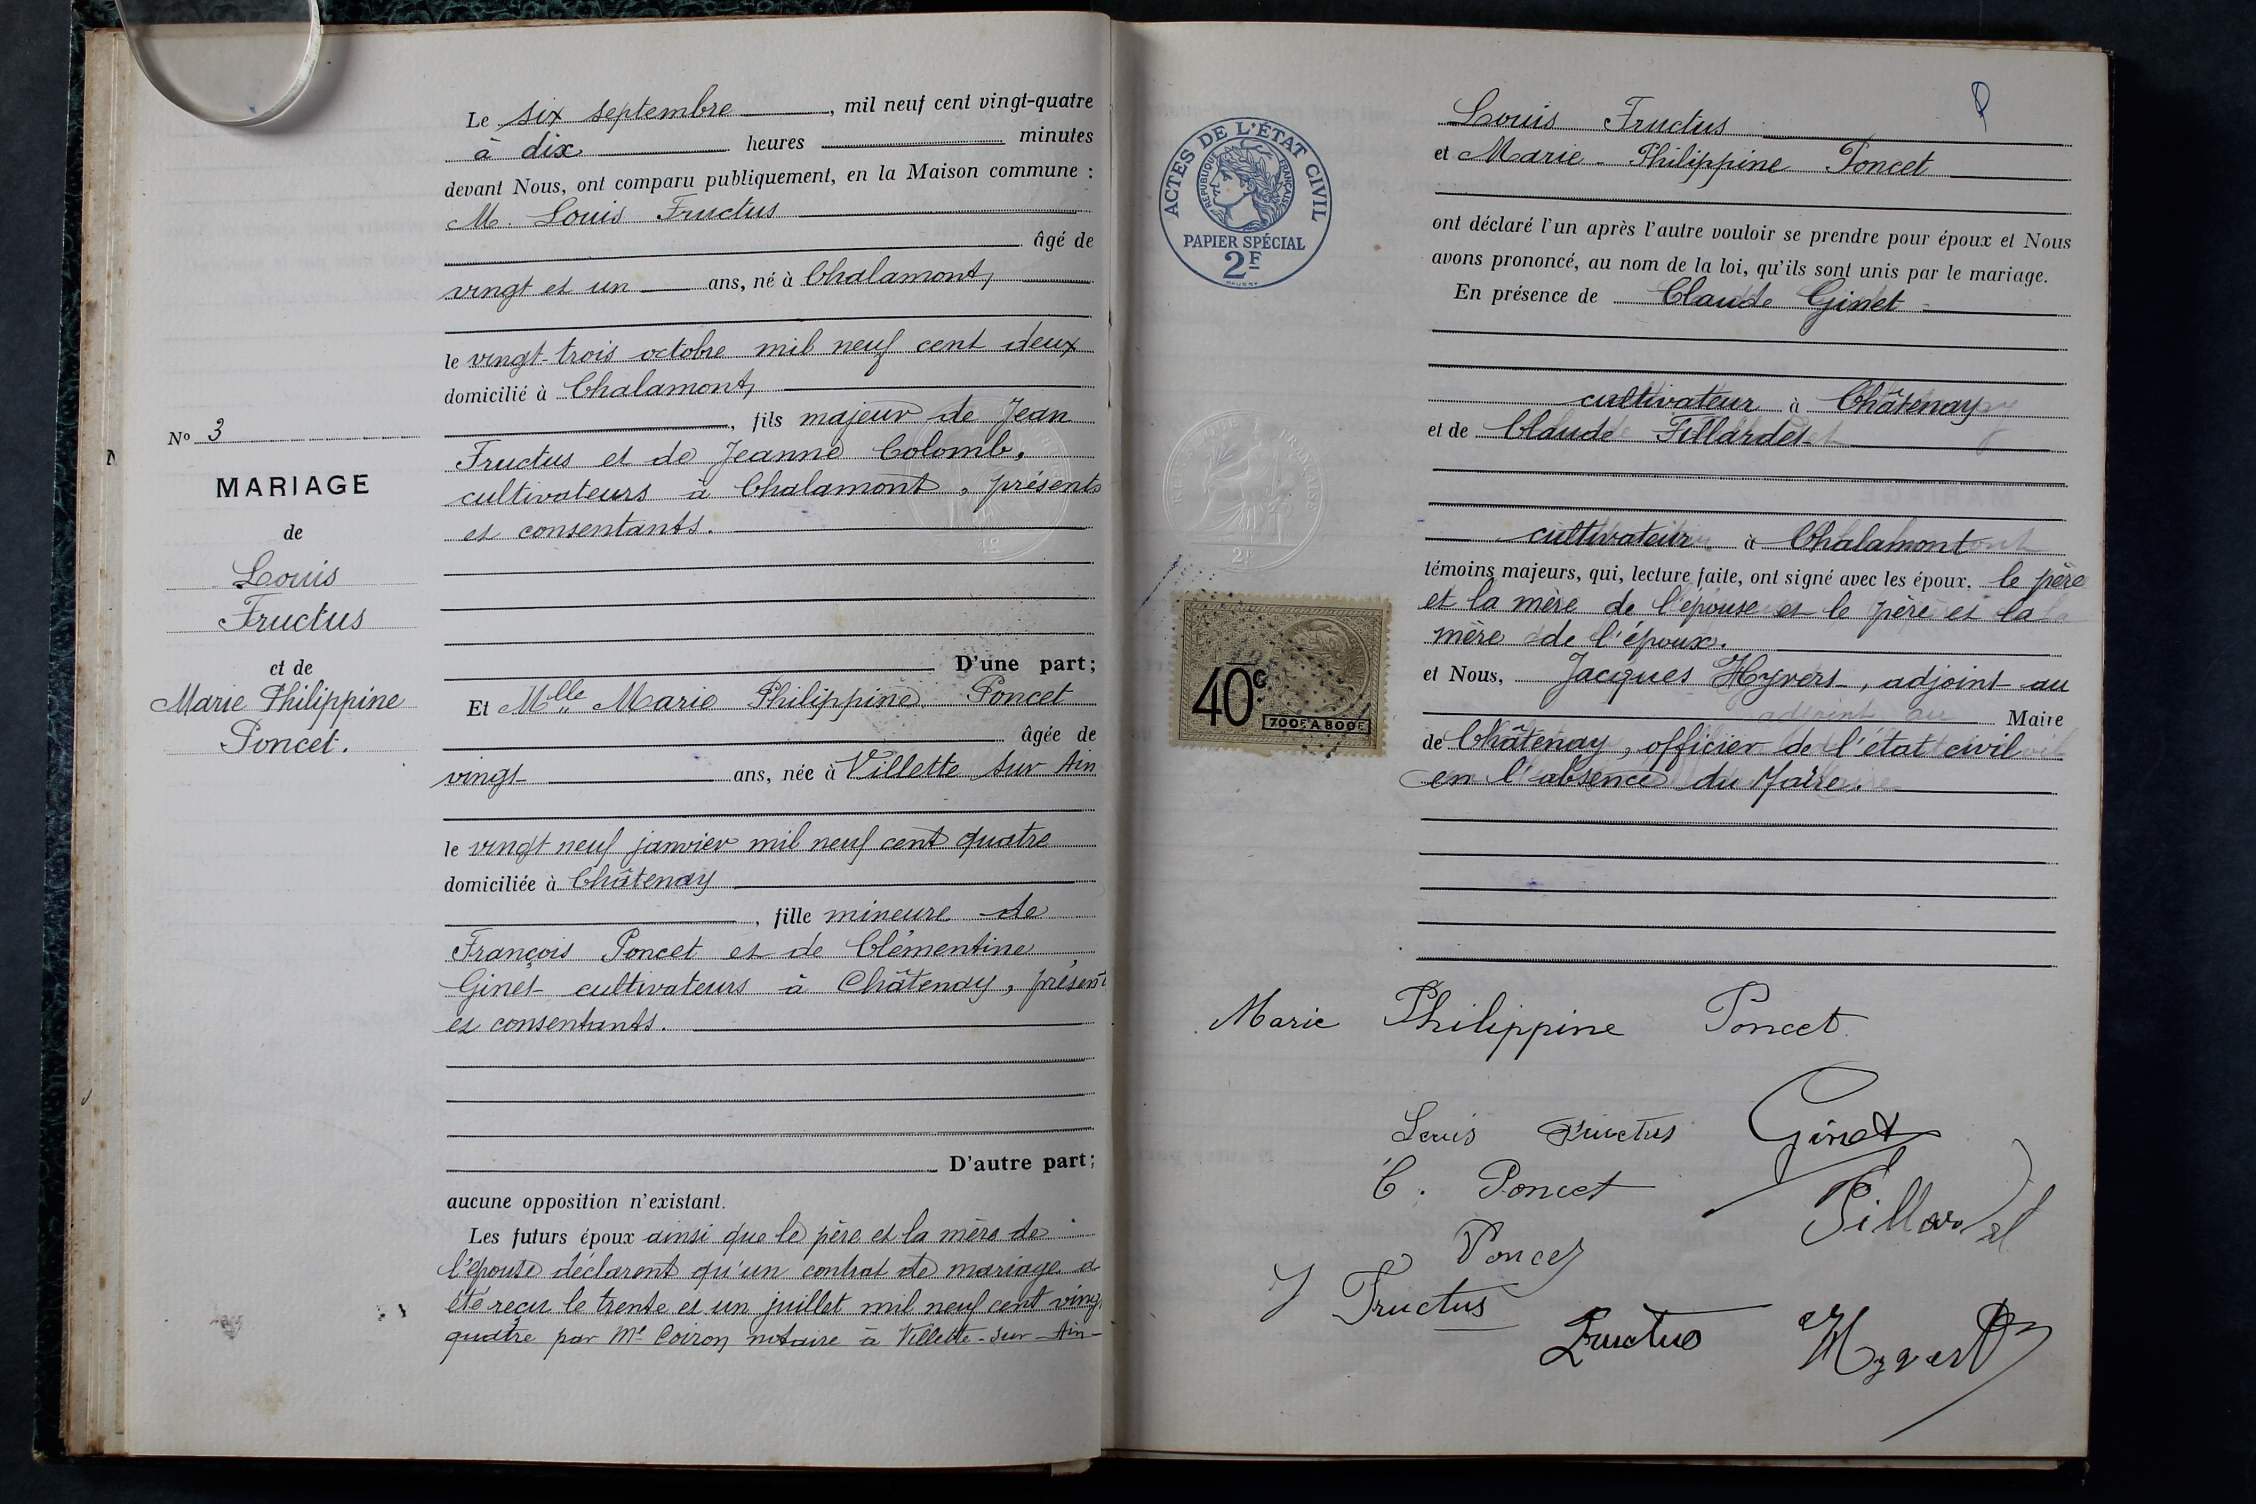 Le six septembre, mil neuf cent vingt-quatre
à dix heures minutes
devant Nous, ont comparu publiquement, en la Maison commune :
M. Louis Fructus
âgé de
vingt et un ans, né à Chalamont,
le vingt-trois octobre mil neuf cent deux
domicilié à Chalamont,
, fils majeur de Jean
Fructus et de Jeanne Colomb,
cultivateurs à Chalamont, présents
et consentants.
No 3
MARIAGE
de
Louis
Fructus
et de
Marie Philippine
Poncet.
D'une part;
Et Mlle Marie Philippine Poncet
âgée de
vingt ans, née à Villette sur Ain
le vingt neuf janvier mil neuf cent quatre
domiciliée à Châtenay
, fille mineure de
François Poncet et de Clémentine
Ginet cultivateurs à Châtenay, présents
et consentants.
D'autre part;
aucune opposition n'existant.
Les futurs époux ainsi que le père et la mère de
l'épouse déclarent qu'un contrat de mariage a
été reçu le trente et un juillet mil neuf cent vingt
quatre par Me Coiron notaire à Villette-sur-Ain-
ACTES DE L'ÉTAT CIVIL
RÉPUBLIQUE FRANÇAISE
PAPIER SPÉCIAL
2F
2F
40c
700F A 800F
Louis Fructus
et Marie-Philippine Poncet
ont déclaré l'un après l'autre vouloir se prendre pour époux et Nous
avons prononcé, au nom de la loi, qu'ils sont unis par le mariage.
En présence de Claude Ginet
cultivateur à Châtenay
et de Claude Fillardet
cultivateur à Chalamont
témoins majeurs, qui, lecture faite, ont signé avec les époux, le père
et la mère de l'épouse et le père et la
mère de l'époux.
et Nous, Jacques Hyvert, adjoint au
Maire
de Châtenay, officier de l'état civil
en l'absence du Maire.
Marie Philippine Poncet
Louis Fructus Ginet
C. Poncet
Fillardet
Poncet
J Fructus
Fructus
Hyvert